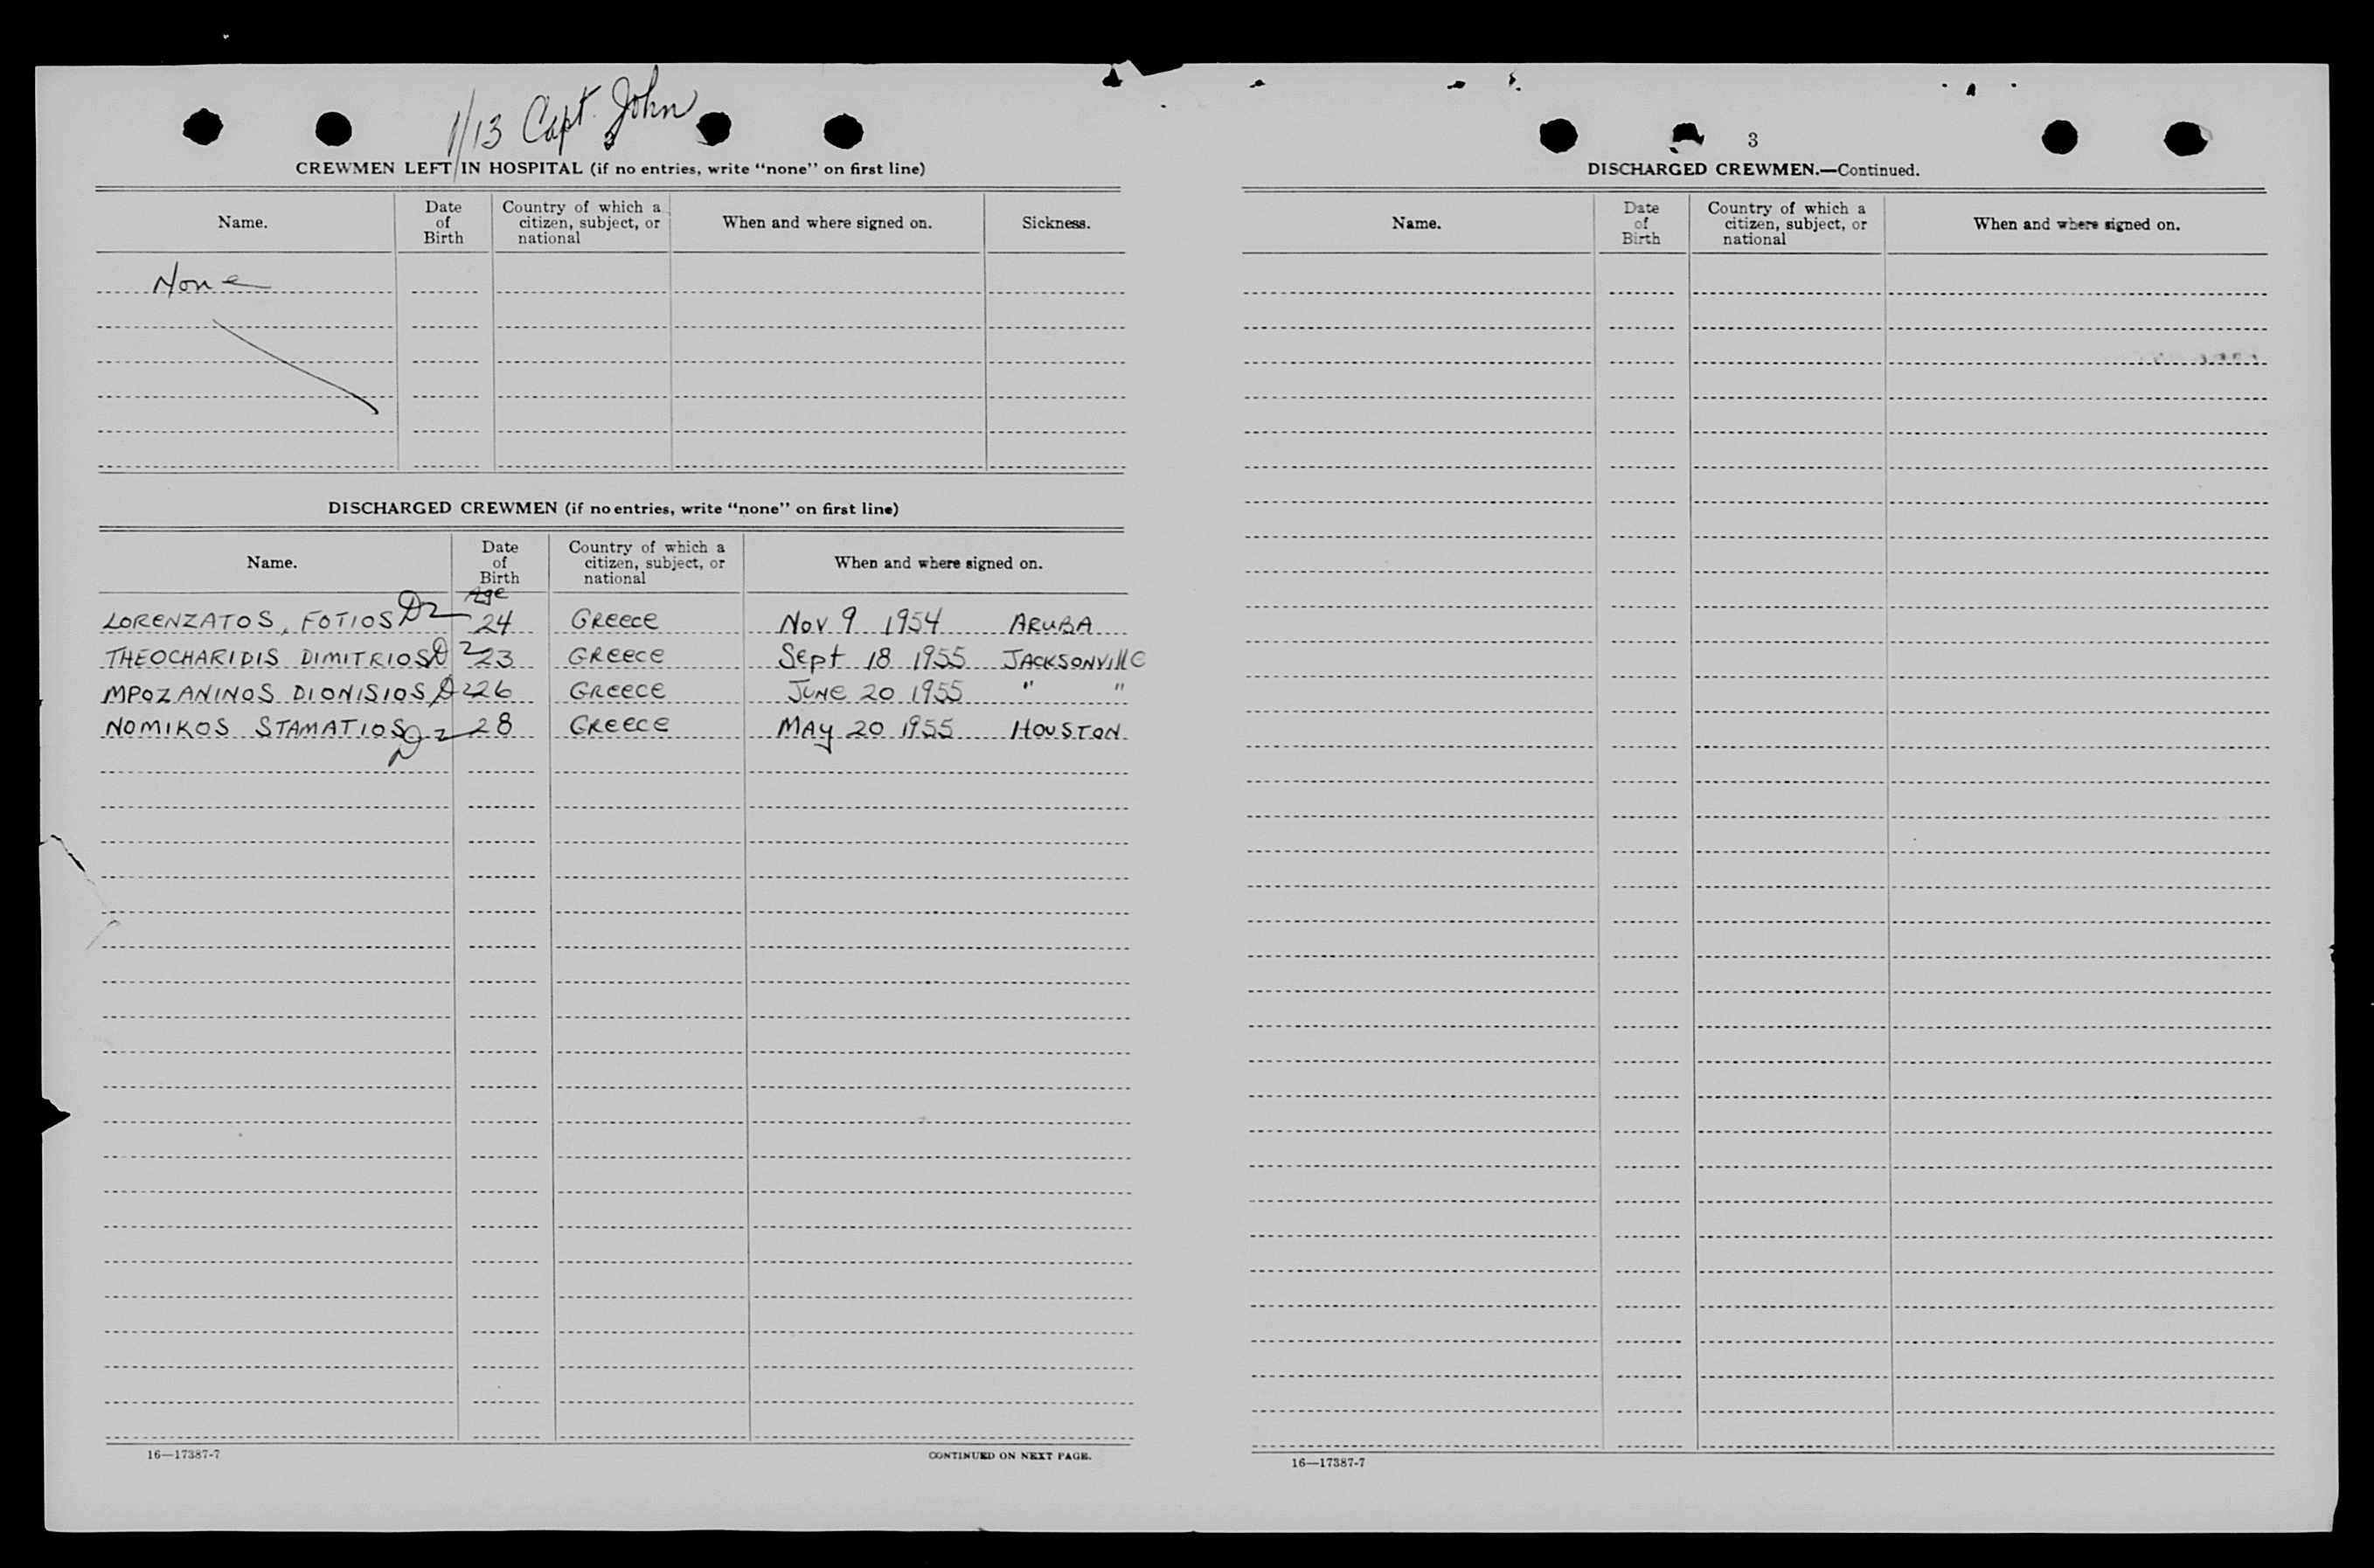 1/13 Capt. John
CREWMEN LEFT IN HOSPITAL (if no entries, write "none" on first line)
Name. Date of Birth Country of which a citizen, subject, or national When and where signed on. Sickness.
None
DISCHARGED CREWMEN (if no entries, write "none" on first line)
Name. Date of Birth Country of which a citizen, subject, or national When and where signed on.
Age
LORENZATOS, FOTIOS D2 24 GREECE Nov 9 1954 ARUBA
THEOCHARIDIS DIMITRIOS D2 23 GREECE Sept 18 1955 JACKSONVILLE
MPOZANINOS DIONISIOS D2 26 GREECE JUNE 20 1955 " "
NOMIKOS STAMATIOS D2 28 GREECE MAY 20 1955 HOUSTON
16—17387-7 CONTINUED ON NEXT PAGE.
3
DISCHARGED CREWMEN.—Continued.
Name. Date of Birth Country of which a citizen, subject, or national When and where signed on.
16—17387-7